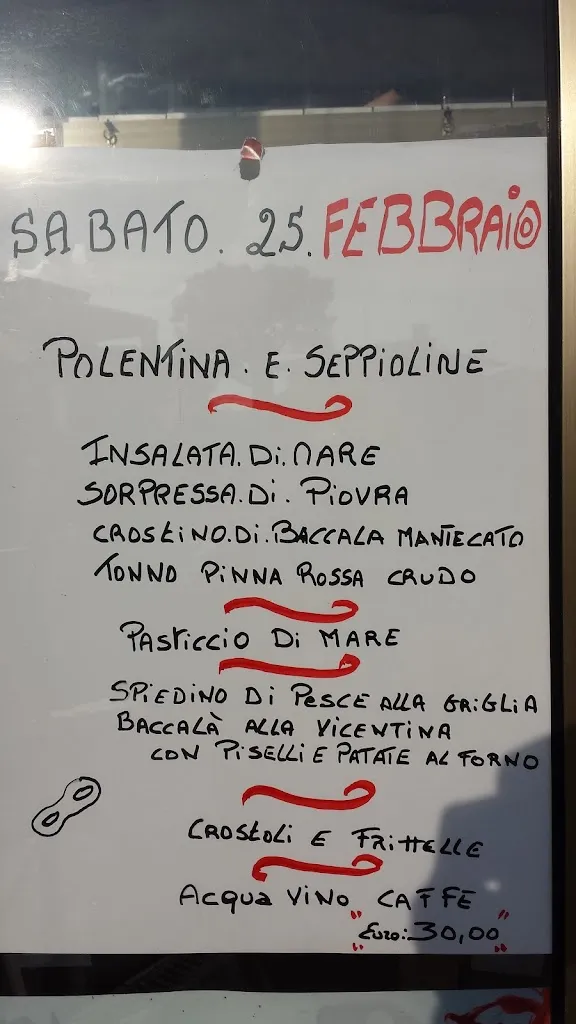 SABATO. 25. FEBBRAIO
POLENTINA. E. SEPPIOLINE
INSALATA. Di. MARE
SORPRESSA. Di. PIOVRA
CROSTINO. Di. BACCALA MANTECATO
TONNO PINNA ROSSA CRUDO
PASTICCIO Di MARE
SPIEDINO Di PESCE ALLA GRIGLIA
BACCALÀ ALLA VICENTINA
CON PISELLI E PATATE AL FORNO
CROSTOLI E FRITTELLE
ACQUA VINO CAFFE
"Euro: 30,00"